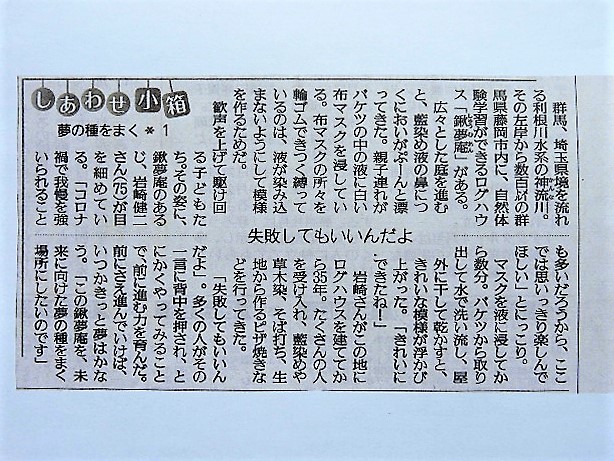 しあわせ小箱
夢の種をまく＊1
失敗してもいいんだよ
群馬、埼玉県境を流れ
る利根川水系の神流川。
その左岸から数百㍍の群
馬県藤岡市内に、自然体
験学習ができるログハウ
ス「鍬夢庵」がある。
広々とした庭を進む
と、藍染め液の鼻につ
くにおいがぷーんと漂
ってきた。親子連れが
バケツの中の液に白い
布マスクを浸してい
る。布マスクの所々を
輪ゴムできつく縛って
いるのは、液が染み込
まないようにして模様
を作るためだ。
歓声を上げて駆け回
る子どもた
ち。その姿に、
鍬夢庵のある
じ、岩崎健二
さん(75)が目
を細めてい
る。「コロナ
禍で我慢を強
いられること
も多いだろうから、ここ
では思いっきり楽しんで
ほしい」とにっこり。
マスクを液に浸してか
ら数分。バケツから取り
出して水で洗い流し、屋
外に干して乾かすと、
きれいな模様が浮かび
上がった。「きれいに
できたね！」
岩崎さんがこの地に
ログハウスを建ててか
ら35年。たくさんの人
を受け入れ、藍染めや
草木染、そば打ち、生
地から作るピザ焼きな
どを行ってきた。
「失敗してもいいん
だよ」。多くの人がその
一言に背中を押され、と
にかくやってみること
で、前に進む力を育んだ。
前にさえ進んでいけば、
いつかきっと夢はかな
う。「この鍬夢庵を、未
来に向けた夢の種をまく
場所にしたいのです」